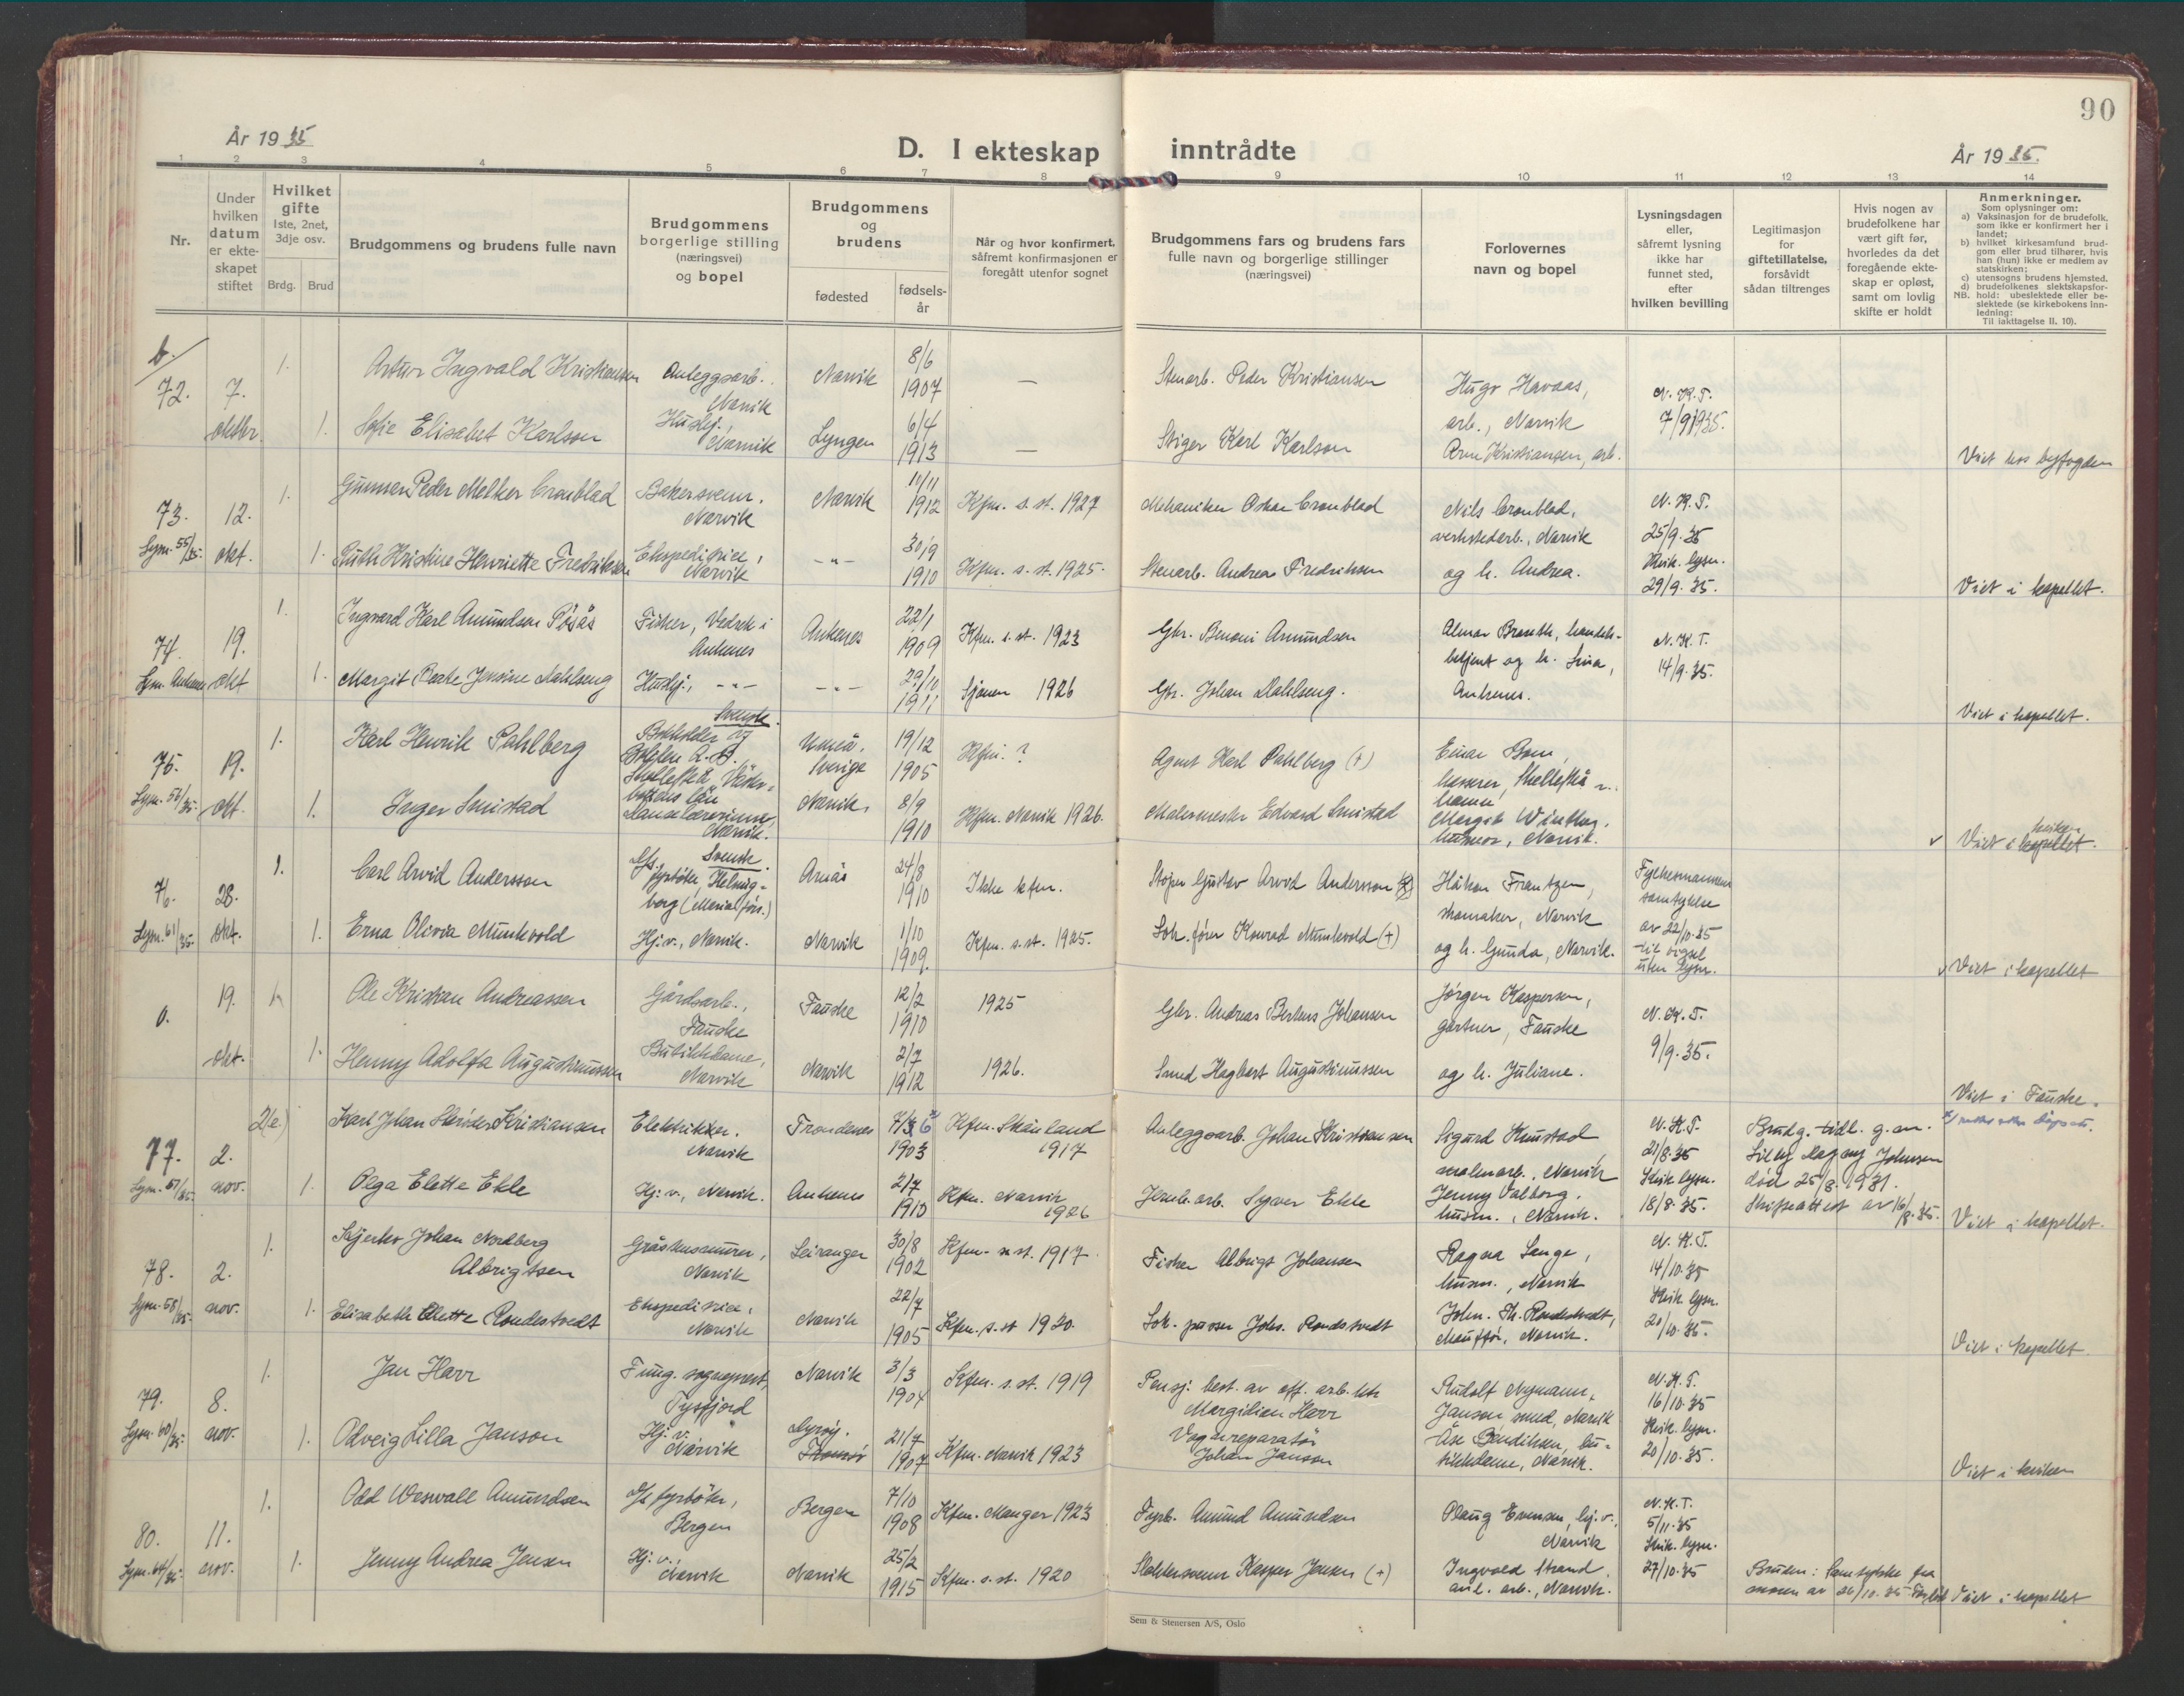 90
År 1935
D. I ekteskap inntrådte
År 1935.
1 2 3 4 5 6 7 8 9 10 11 12 13 14
Nr.
Under hvilken datum er ekteskapet stiftet
Hvilket gifte
1ste, 2net, 3dje osv.
Brdg. Brud
Brudgommens og brudens fulle navn
Brudgommens borgerlige stilling (næringsvei) og bopel
Brudgommens og brudens
fødested
fødselsår
Når og hvor konfirmert, såfremt konfirmasjonen er foregått utenfor sognet
Brudgommens fars og brudens fars fulle navn og borgerlige stillinger (næringsvei)
Forlovernes navn og bopel
Lysningsdagen eller, såfremt lysning ikke har funnet sted, efter hvilken bevilling
Legitimasjon for giftetillatelse, forsåvidt sådan tiltrenges
Hvis nogen av brudefolkene har vært gift før, hvorledes da det foregående ekteskap er opløst, samt om lovlig skifte er holdt
Anmerkninger.
Som oplysninger om:
a) Vaksinasjon for de brudefolk, som ikke er konfirmert her i landet;
b) hvilket kirkesamfund brudgom eller brud tilhører, hvis han (hun) ikke er medlem av statskirken;
c) utensogns brudens hjemsted.
d) brudefolkenes slektskapsforhold: ubeslektede eller beslektede (se kirkebokens innledning:
NB. Til iakttagelse II, 10).
b.
72. 7. oktbr.
1. Artur Ingvald Kristiansen Anleggsarb., Narvik Narvik 8/6 1907 — Stenarb. Peder Kristiansen
1. Sofie Elisabet Karlson Husbej., Narvik Lyngen 6/4 1913 — Stiger Karl Karlson
Hugo Havaas, arb., Narvik
Arne Kristiansen, arb.
N. K. T. 7/9 1935.
Viet hos byfogden
73. 12. okt. Lysn. 55/35.
1. Gunnar Peder Melker Cronblad Bakersvenn. Narvik Narvik 11/11 1912 Kfm. s. st. 1927 Mekaniker Oskar Cronblad
1. Ruth Kristine Henriette Fredriksen Ekspeditrice, Narvik -"- 30/9 1910 Kfm. s. st. 1925. Stenarb. Andrea Fredriksen
Nils Cronblad, verkstedarb., Narvik og h. Andrea.
N. K. T. 25/9.35 Kirk. lysn. 29/9.35.
Viet i kapellet.
74. 19. okt Lysn. Ankenes
1. Ingvard Karl Amundsen Påsås Fisker, Vedrek i Ankenes Ankenes 22/1 1909 Kfm. s. st. 1923 Gbr. Benoni Amundsen
1. Margit Beate Jensine Dahlseng Husbej., -"- -"- 29/10 1911 Sjonen 1926 Gbr. Johan Dahlseng.
N. K. T. 14/9.35.
Viet i kapellet.
75. 19. okt. Lysn. 56/35.
1. Karl Henrik Pahlberg Svensk. Umeå, Sverige 19/12 1905 Kfm. ? Agent Karl Pahlberg (+)
1. Inger Smistad Danselærerinne, Narvik. Narvik. 8/9 1910 Kfm. Narvik 1926. Malermester Edvard Smistad
Viet i kapellet. kirken
76. 28. okt. Lysn. 61/35.
1. Carl Arvid Andersson Svensk. fyrbøter, Arnäs 24/8 1910 Ikke kfm. Gustav Arvid Andersson
1. Erna Olivia Munkvold Hj.v., Narvik. Narvik 1/10 1909. Kfm. s. st. 1925. Lok. fører Konrad Munkvold (+)
Håkon Frantzen, skomaker, Narvik og h. Gunda, Narvik.
Fylkesmannens samtykke av 22/10.35 til vigsel uten lysn.
Viet i kapellet
0. 19. okt.
1. Ole Kristian Andreassen Gårdsarb., Fauske Fauske 12/2 1910 1925 Gbr. Andreas Berteus Johansen
1. Henny Adolfa Augustinussen Butikkdame, Narvik Narvik 2/7 1912 1926. Smed Hagbart Augustinussen
Jørgen Kaspersen, gartner, Fauske og h. Juliane.
N. K. T. 9/9.35.
Viet i Fauske.
77. 2. nov. Lysn. 51/35.
2(e.) Karl Johan Skrøder Kristiansen Elektriker. Narvik Trondenes 7/3 6 1903 Kfm. Skånland 1917 Anleggsarb. Johan Kristiansen
1. Olga Elette Ekle Hj. v., Narvik. Ankenes 2/7 1910 Kfm. Narvik 1926 Jernb. arb. Syver Ekle
malmarb., Narvik
Jenny Valborg, husm., Narvik.
N. K. T. 21/8.35 Kirk. lysn. 18/8.35.
Brudg. tidl. g. m. Lilly Dagny Johnsen død 25/8.1931. Skifteattest av 16/8.35.
Viet i kapellet.
78. 2. nov. Lysn. 58/35.
1. Johan Nordberg Albrigtsen Gråstensmurer, Narvik Leiranger 30/8 1902 Kfm. s. st. 1917. Fisker Albrigt Johansen
1. Elisabeth Elette Rondestvedt Ekspeditrice, Narvik Narvik 22/7 1905 Kfm. s. st 1920. Lok. pusser Johs. Rondestvedt
Ragna Lange, husm., Narvik
John. Th. Rondestvedt, Chauffør, Narvik.
N. K. T. 14/10.35 Kirk. lysn. 20/10.35.
Viet i kapellet.
79. 8. nov. Lysn. 60/35.
1. Jan Harr Fung. sogneprest, Tysfjord Narvik 3/3 1904 Kfm. s. st. 1919 Pensj. best. av off. arb. ktr. Margidian Harr
1. Odveig Lilla Janson Hj. v. Narvik Tromsø 21/7 1907 Kfm. Narvik 1923 Vognreparatør Johan Janson
Rudolf Nymann, Janson smed, Narvik
Åse Bendiksen, butikkdame, Narvik.
N. K. T. 16/10.35 Kirk. lysn. 20/10.35.
Viet i kirken
80. 11. nov. Lysn. 64/35.
1. Odd Weswall Amundsen fyrbøter, Bergen Bergen 7/10 1908 Kfm. Manger 1923 Fyrb. Amund Amundsen
1. Jenny Andrea Jensen Hj. v. Narvik Narvik 25/2 1915 Kfm. s. st. 1920 Slaktersvenn Kasper Jensen (+)
Olaug Evensen, hj. v., Narvik
Ingvald Strand, anl. arb., Narvik.
N. K. T. 5/11.35 Kirk. lysn. 27/10.35
Bruden: Samtykke fra moren av 26/10.35
Viet i kapellet
Sem & Stenersen A/S, Oslo